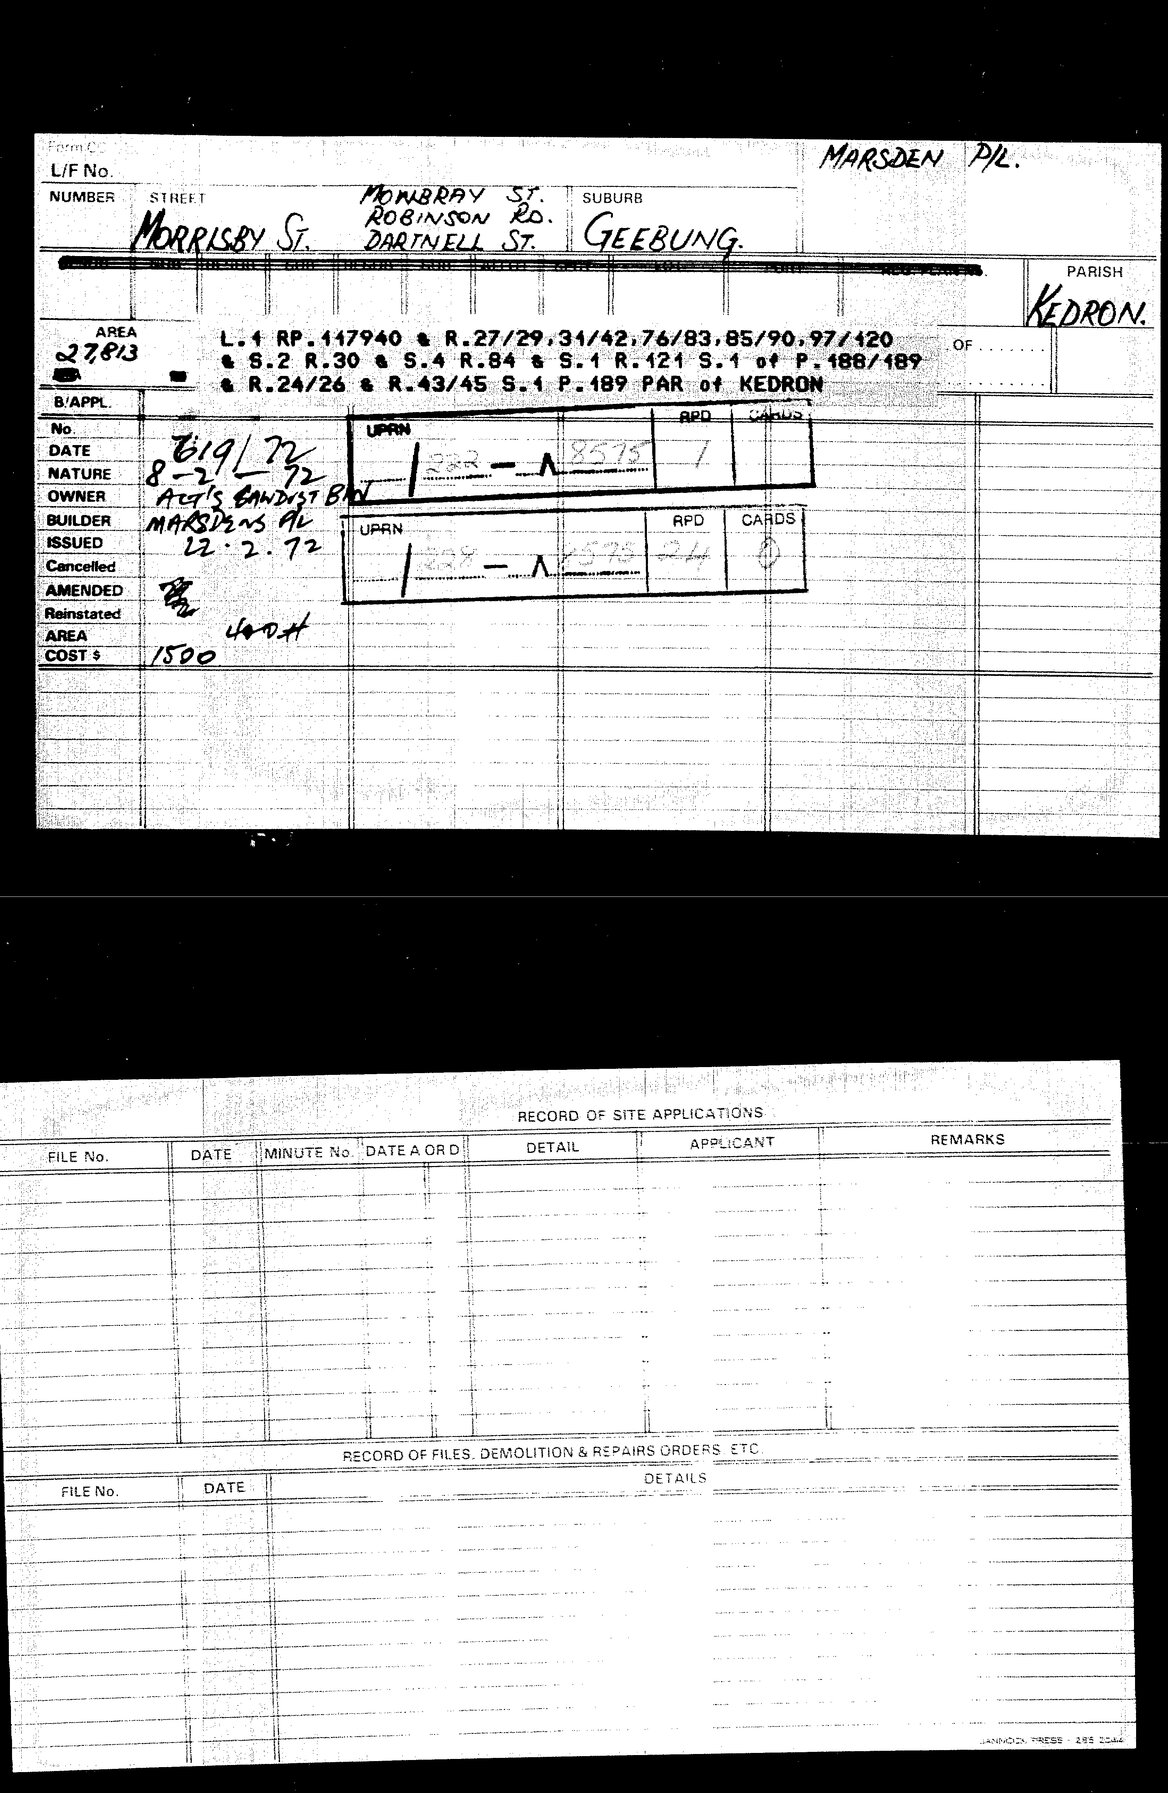 Form CC
MARSDEN P/L.
L/F No.
NUMBER STREET SUBURB
MORRISBY ST. MOWBRAY ST. GEEBUNG.
ROBINSON RD.
DARTNELL ST.
PARISH
KEDRON.
AREA
27,813
L.1 RP.117940 & R.27/29,31/42,76/83,85/90,97/120
& S.2 R.30 & S.4 R.84 & S.1 R.121 S.1 of P.188/189
& R.24/26 & R.43/45 S.1 P.189 PAR of KEDRON
OF
B/APPL.
No. 619/72
DATE 8-2-72
NATURE ALT'S SAWDUST BIN
OWNER MARSDENS P/L
BUILDER
ISSUED 22.2.72
Cancelled
AMENDED
Reinstated
AREA
COST $ 1500
UPRN RPD CARDS
/ 222 - Λ 8575 1
UPRN RPD CARDS
/ 228 - Λ 24 0
RECORD OF SITE APPLICATIONS
FILE No. DATE MINUTE No. DATE A OR D DETAIL APPLICANT REMARKS
RECORD OF FILES, DEMOLITION & REPAIRS ORDERS ETC.
FILE No. DATE DETAILS